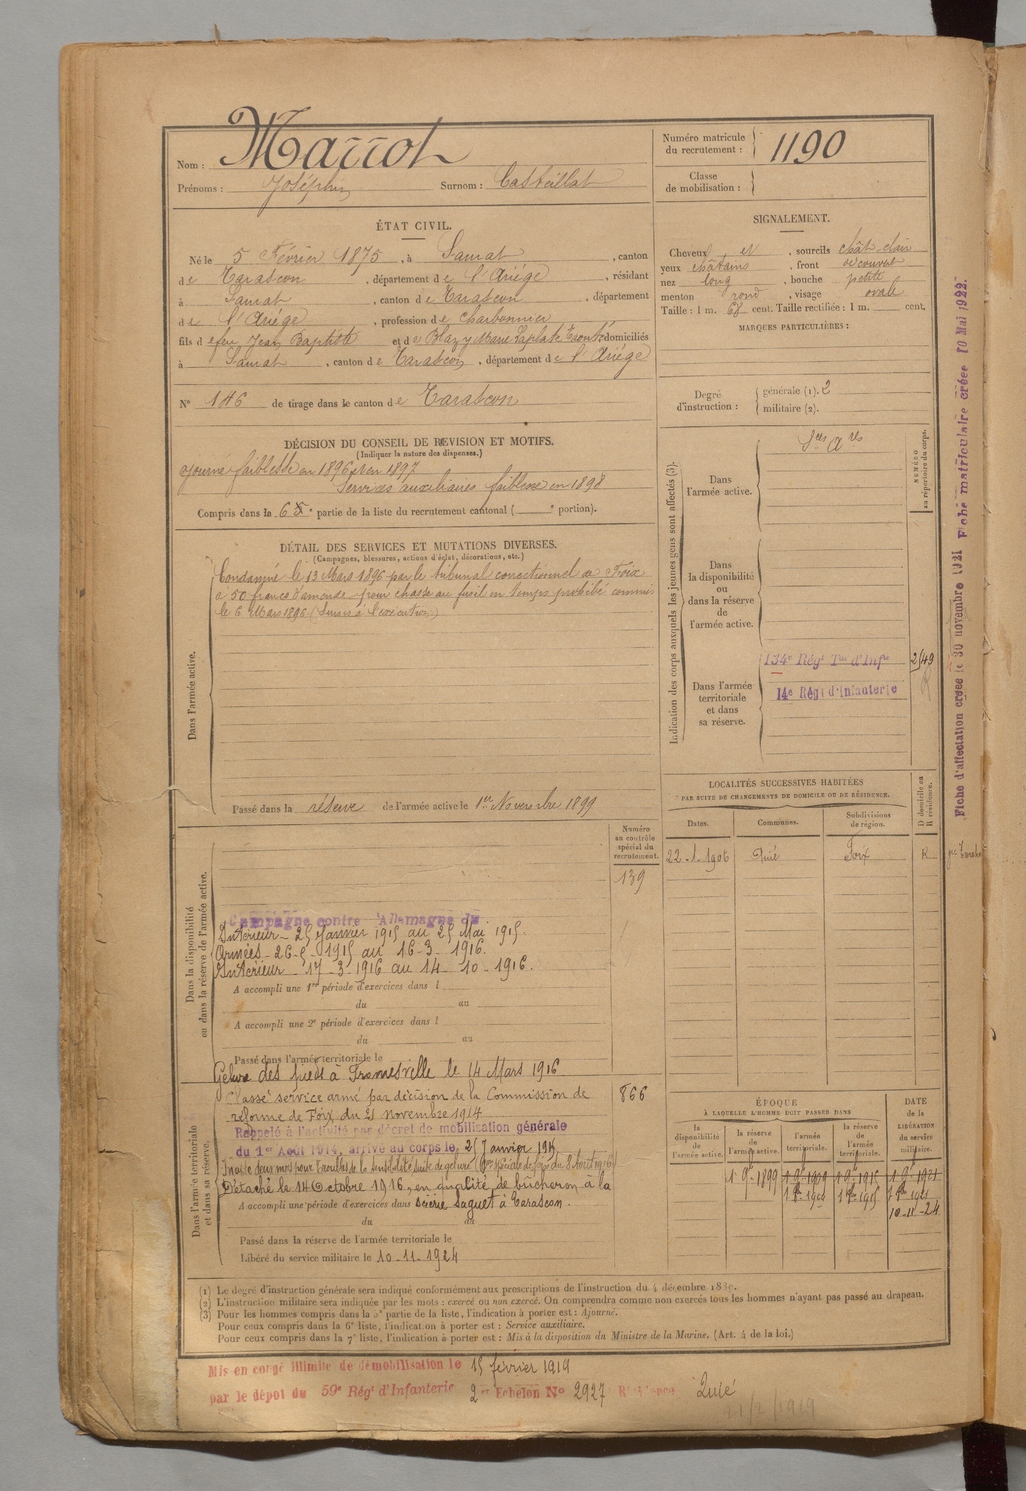 Nom : Marrot
Prénoms : Joséphin Surnom : Casteillat
Numéro matricule du recrutement : 1190
Classe de mobilisation :
ÉTAT CIVIL.
Né le 5 Février 1875, à , canton
de Tarascon, département de l'Ariège, résidant
à , canton de Tarascon, département
de l'Ariège, profession de charbonnier
fils de feu Jean Baptiste et de domiciliés
à , canton de Tarascon, département de l'Ariège
N° 146 de tirage dans le canton de Tarascon
SIGNALEMENT.
Cheveux et , sourcils chât-clair
yeux châtains, front découvert
nez long, bouche petite
menton rond, visage ovale
Taille : 1 m. 68 cent. Taille rectifiée : 1 m. cent.
MARQUES PARTICULIÈRES :
Degré d'instruction : générale (1). 2
militaire (2).
DÉCISION DU CONSEIL DE REVISION ET MOTIFS.
(Indiquer la nature des dispenses.)
ajourné faiblesse en 1896 et en 1897
Services auxiliaires faiblesse en 1898
Compris dans la 6e partie de la liste du recrutement cantonal ( e portion).
DÉTAIL DES SERVICES ET MUTATIONS DIVERSES.
(Campagnes, blessures, actions d'éclat, décorations, etc.)
Dans l'armée active.
Condamné le 13 Mars 1896 par le tribunal correctionnel de Foix
à 50 francs d'amende pour chasse au fusil en temps prohibé commis
le 6 Mars 1896 (Sursis à l'exécution)
Passé dans la réserve de l'armée active le 1er Novembre 1899
Indication des corps auxquels les jeunes gens sont affectés (3).
NUMÉRO au répertoire du corps.
Dans l'armée active.
Dans la disponibilité ou dans la réserve de l'armée active.
Dans l'armée territoriale et dans sa réserve.
134e Régt Terr d'Infie 2/49
14e Régt d'Infanterie
LOCALITÉS SUCCESSIVES HABITÉES
PAR SUITE DE CHANGEMENTS DE DOMICILE OU DE RÉSIDENCE.
Dates. Communes. Subdivisions de région. D domicile ou R résidence.
22-1-1906 Quié Foix R
Dans la disponibilité ou dans la réserve de l'armée active.
Numéro au contrôle spécial du recrutement.
139
Campagne contre l'Allemagne du
Intérieur - 25 Janvier 1915 au 25 Mai 1915.
Armées - 26-5-1915 au 16-3-1916.
Intérieur 17-3-1916 au 14-10-1916.
A accompli une 1re période d'exercices dans l
du au
A accompli une 2e période d'exercices dans l
du au
Passé dans l'armée territoriale le
Gelure des pieds à le 14 Mars 1916
Dans l'armée territoriale et dans sa réserve.
866
Classé service armé par décision de la Commission de
réforme de Foix du 21 novembre 1914
Rappelé à l'activité par décret de mobilisation générale
du 1er Août 1914, arrivé au corps le 25 Janvier 1915
Inapte deux mois pour troubles de la sensibilité suite de gelure
Détaché le 14 Octobre 1916, en qualité de bûcheron à la
A accompli une période d'exercices dans scierie Saguet à Tarascon.
du au
Passé dans la réserve de l'armée territoriale le
Libéré du service militaire le 10-11-1924
ÉPOQUE
À LAQUELLE L'HOMME DOIT PASSER DANS
la disponibilité de l'armée active. la réserve de l'armée active. l'armée territoriale. la réserve de l'armée territoriale.
DATE de la LIBÉRATION du service militaire.
10-11-24
(1) Le degré d'instruction générale sera indiqué conformément aux prescriptions de l'instruction du 4 décembre
(2) L'instruction militaire sera indiquée par les mots : exercé ou non exercé. On comprendra comme non exercés tous les hommes n'ayant pas passé au drapeau.
(3) Pour les hommes compris dans la 5e partie de la liste, l'indication à porter est : Ajourné.
Pour ceux compris dans la 6e liste, l'indication à porter est : Service auxiliaire.
Pour ceux compris dans la 7e liste, l'indication à porter est : Mis à la disposition du Ministre de la Marine. (Art. 4 de la loi.)
Mis en congé illimité de démobilisation le 15 février 1919
par le dépôt du 59e Régt d'Infanterie 2e Echelon No 2927 Résidence Quié
21/2/1919
Fiche d'affectation créée le 30 novembre 1921 Fiche matriculaire créée 10 Mai 1922.